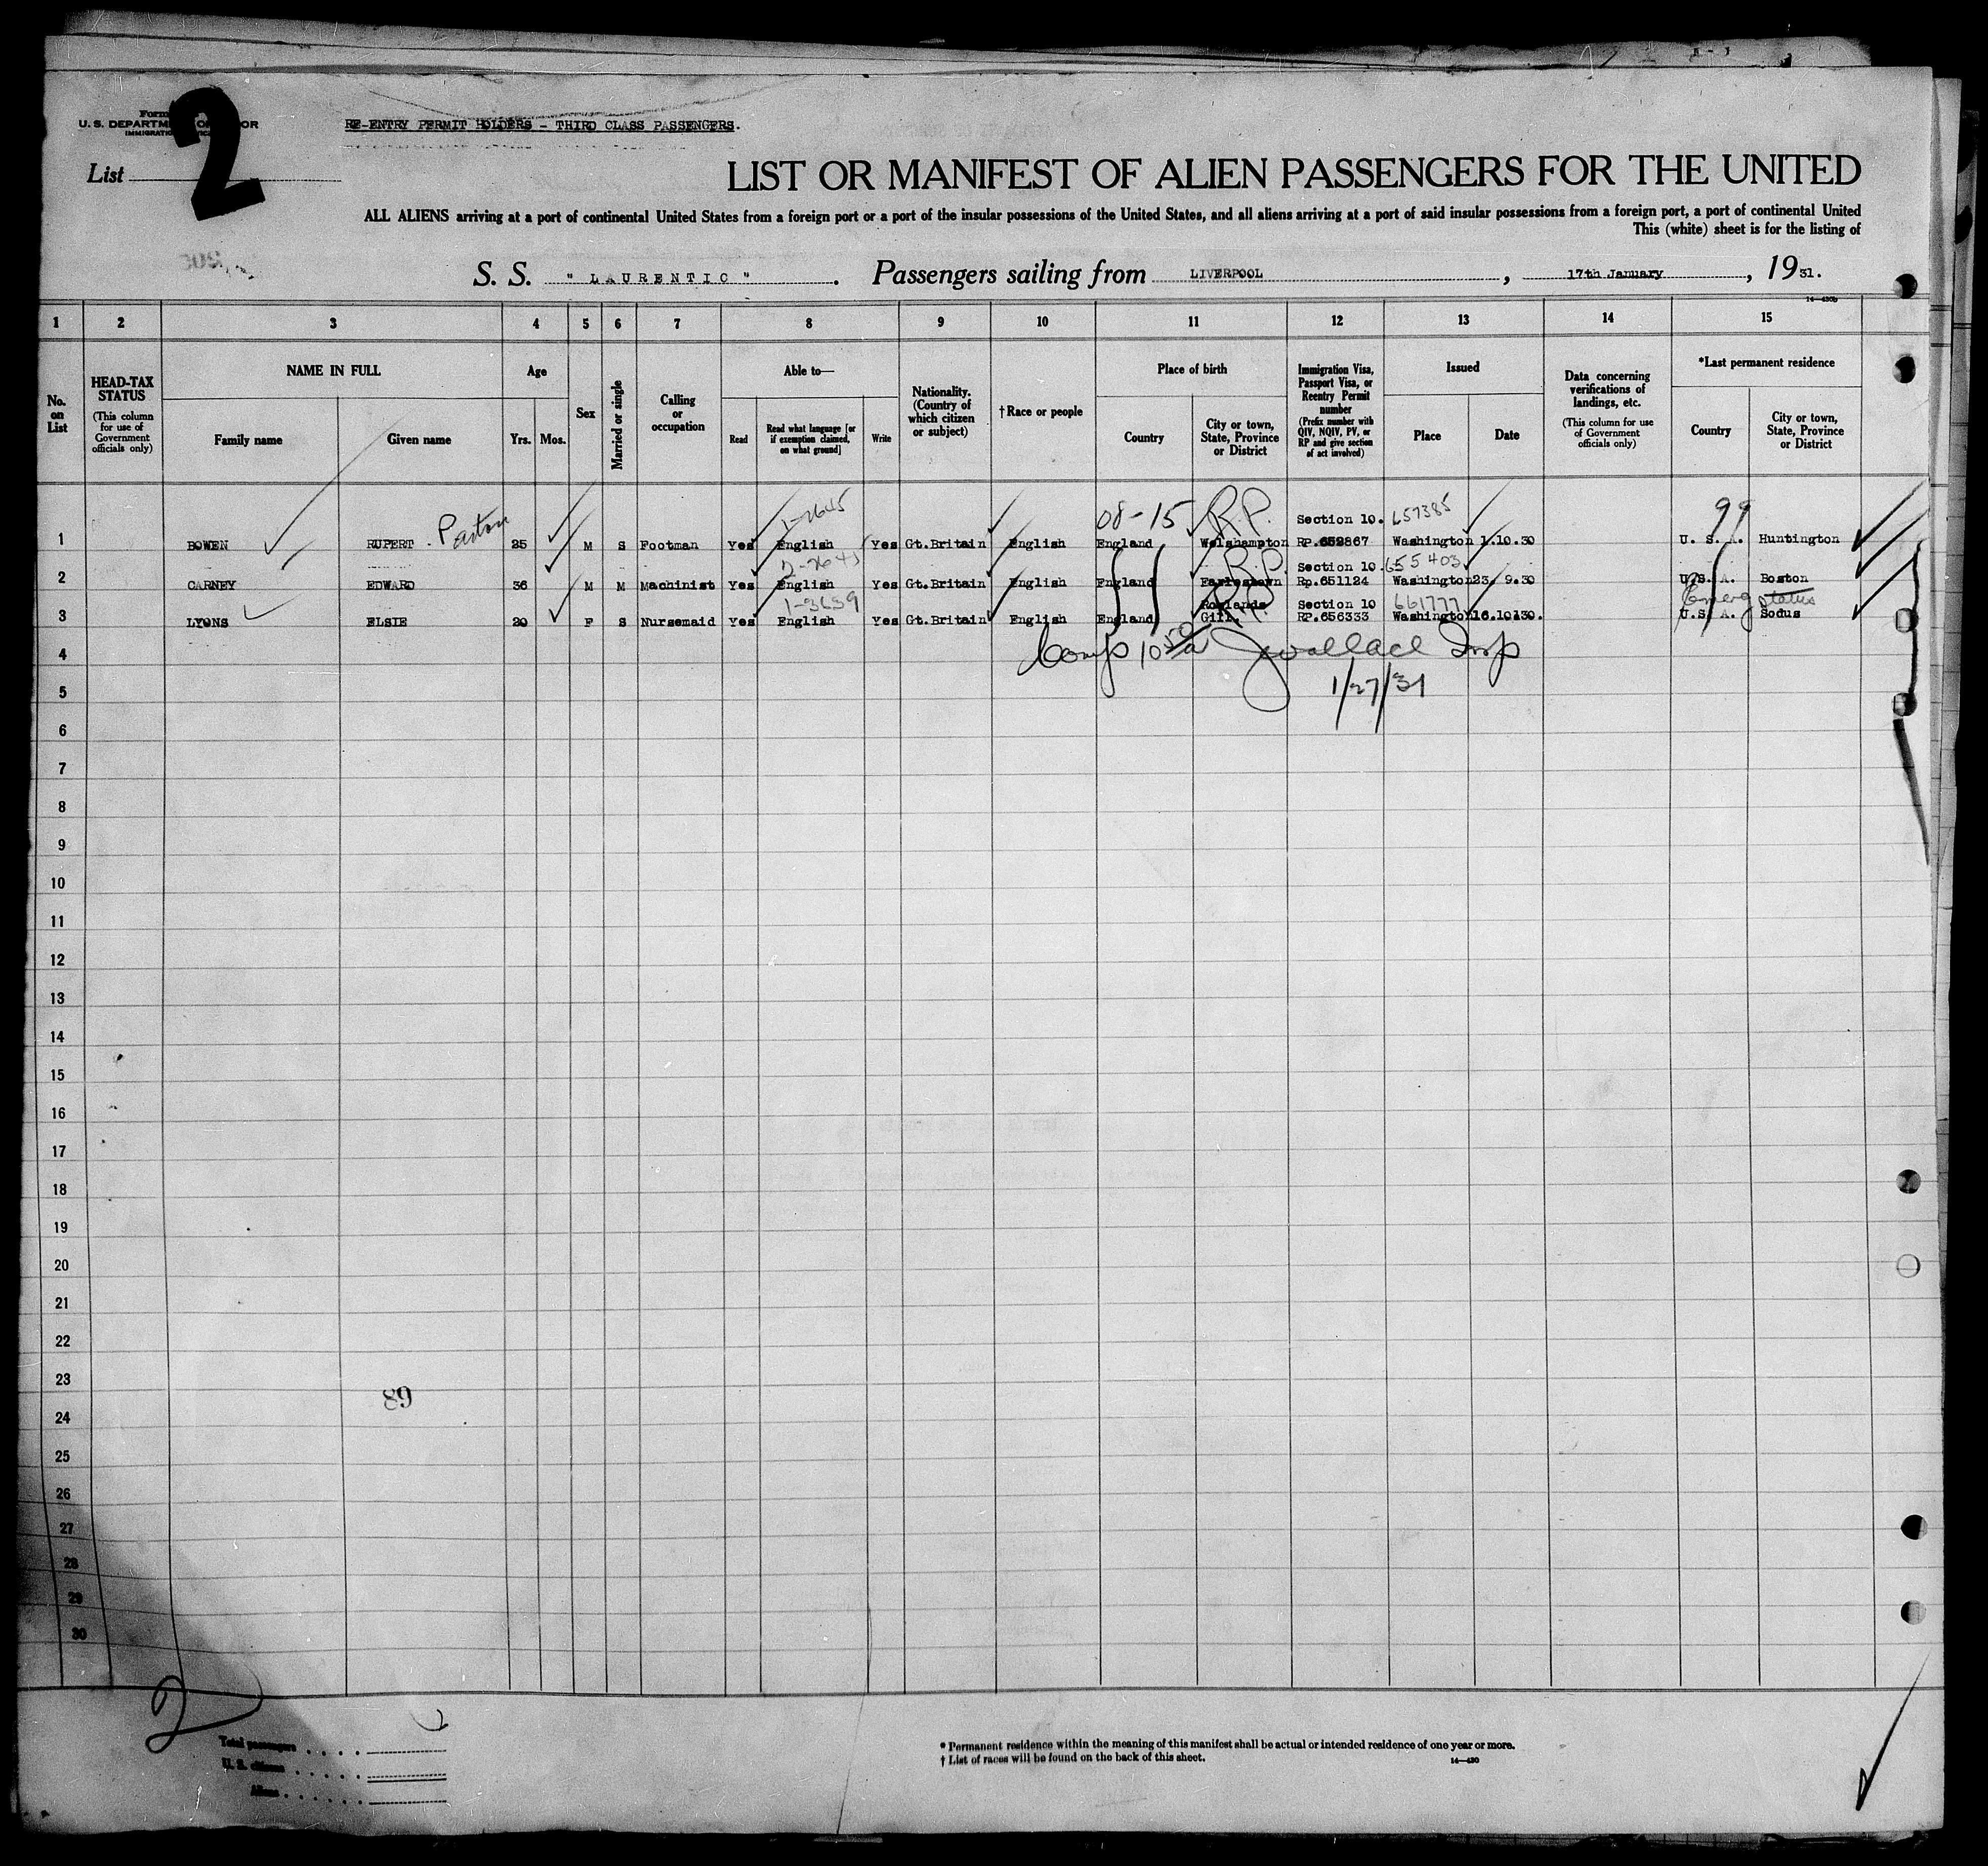 Form
U. S. DEPARTM OR
IMMIGRATI
2
RE-ENTRY PERMIT HOLDERS - THIRD CLASS PASSENGERS.
List
LIST OR MANIFEST OF ALIEN PASSENGERS FOR THE UNITED
ALL ALIENS arriving at a port of continental United States from a foreign port or a port of the insular possessions of the United States, and all aliens arriving at a port of said insular possessions from a foreign port, a port of continental United
This (white) sheet is for the listing of
S. S. "LAURENTIC". Passengers sailing from LIVERPOOL, 17th January, 1931.
14—430b
1 2 3 4 5 6 7 8 9 10 11 12 13 14 15
No. on List
HEAD-TAX STATUS (This column for use of Government officials only)
NAME IN FULL
Family name Given name
Age
Yrs. Mos.
Sex
Married or single
Calling or occupation
Able to—
Read Read what language [or if exemption claimed, on what ground] Write
Nationality. (Country of which citizen or subject)
†Race or people
Place of birth
Country City or town, State, Province or District
Immigration Visa, Passport Visa, or Reentry Permit number (Prefix number with QIV, NQIV, PV, or RP and give section of act involved)
Issued
Place Date
Data concerning verifications of landings, etc. (This column for use of Government officials only)
*Last permanent residence
Country City or town, State, Province or District
1-2645 08-15 R.P. Section 10. 657385 99
1 BOWEN RUPERT. Paxton 25 M S Footman Yes English Yes Gt.Britain English England Welshampton RP.652867 Washington 1.10.30 U. S. A. Huntington
2-2645 R.P. Section 10. 655403
2 CARNEY EDWARD 36 M M Machinist Yes English Yes Gt.Britain English England Earlestown Rp.651124 Washington 23. 9.30 U.S. A. Boston
1-3639 Rowlands R.P. Section 10 661777 Emerg status
3 LYONS ELSIE 20 F S Nursemaid Yes English Yes Gt.Britain English England Gill. RP.656333 Washington 16.10.30. U.S. A. Sodus
4 Comp 10 50a JWallace Insp
5 1/27/31
6
7
8
9
10
11
12
13
14
15
16
17
18
19
20
21
22
23
89
24
25
26
27
28
29
30
2
Total passengers
U. S. citizens
Aliens
* Permanent residence within the meaning of this manifest shall be actual or intended residence of one year or more.
† List of races will be found on the back of this sheet.
14—430